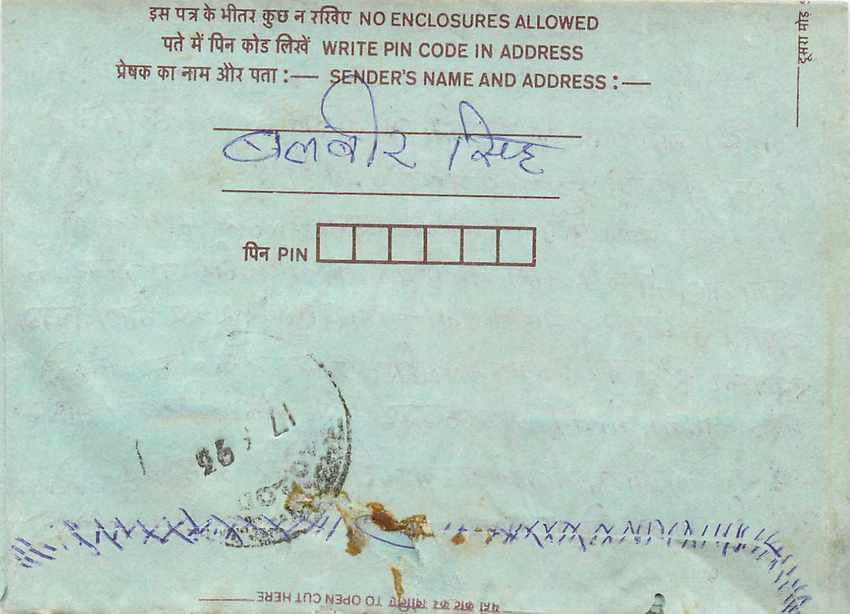 इस पत्र के भीतर कुछ न रखिए NO ENCLOSURES ALLOWED
पते में पिन कोड लिखें WRITE PIN CODE IN ADDRESS
प्रेषक का नाम और पता :— SENDER'S NAME AND ADDRESS :—
बलबीर सिंह
पिन PIN
दूसरा मोड़
यहां काट कर खोलिए TO OPEN CUT HERE